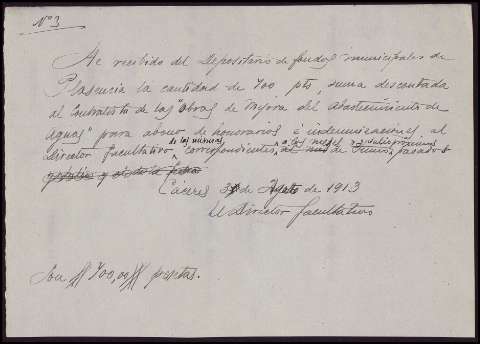 Nº 3
He recibido del Depositario de fondos municipales de
Plasencia la cantidad de 700 pts, suma descontada
al Contratista de las "Obras de Mejora del abastecimiento de
aguas" para abono de honorarios é indemnizaciones al
de las mismas, a los meses y Julio próximos
Director facultativo correspondientes al mes de Junio pasados
y el de la fecha
Cáceres 31 de Agosto de 1913
El Director facultativo
Son 700,00 pesetas.